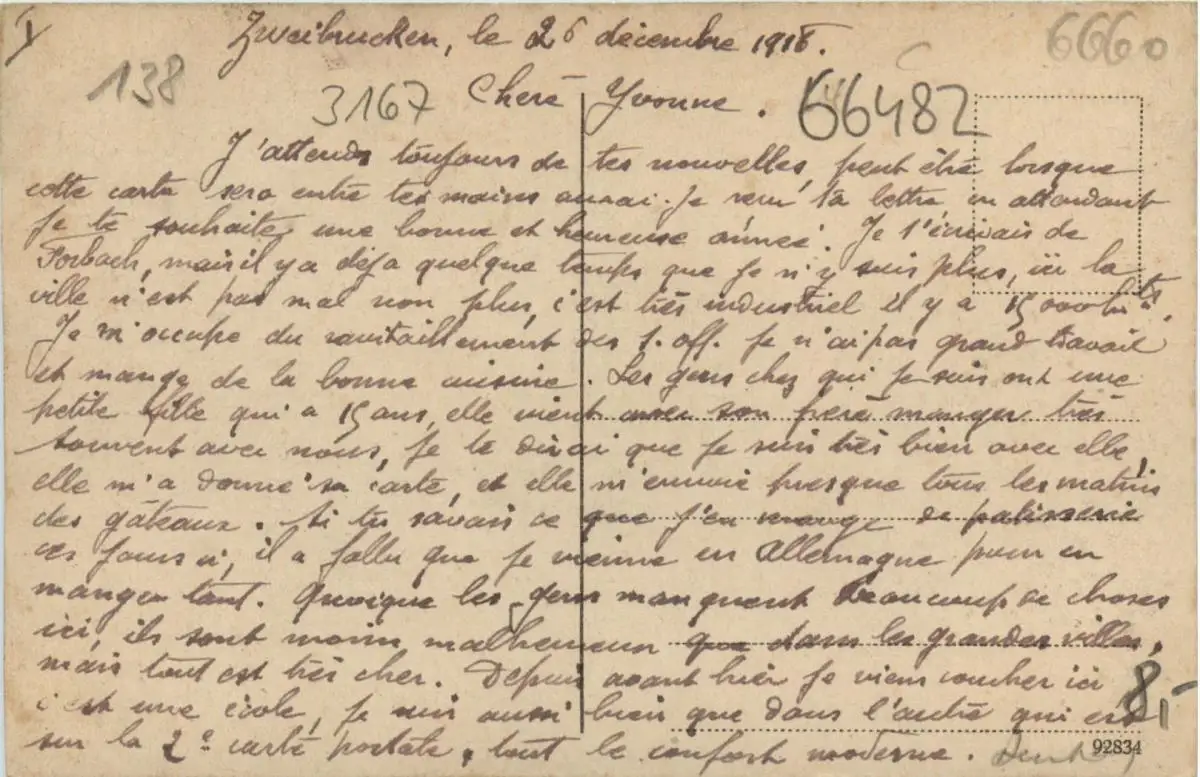 Zweibrucken, le 26 décembre 1918.
6660
138
3167
Chere Yvonne.
66482
J'attends toujours de tes nouvelles, peut être lorsque
cette carte sera entre tes mains aurai-je reçu ta lettre en attendant
je te souhaite une bonne et heureuse année. Je t'écrivais de
Forbach, mais il y a déja quelque temps que je n'y suis plus, ici la
ville n'est pas mal non plus, c'est très industriel il y a 15000 hts.
Je m'occupe du ravitaillement des s. off. je n'ai pas grand travail
et mange de la bonne cuisine. Les gens chez qui je suis ont une
petite fille qui a 15 ans, elle vient avec son père manger très
souvent avec nous, je te dirai que je suis très bien avec elle,
elle m'a donné sa carte, et elle m'envoie presque tous les matins
des gâteaux. Si tu savais ce que j'en mange de patisserie
ces jours ci, il a fallu que je vienne en Allemagne pour en
manger tant. Quoique les gens manquent beaucoup de choses
ici, ils sont moins malheureux que dans les grandes villes,
mais tout est très cher. Depuis avant hier je viens coucher ici
c'est une école, je suis aussi bien que dans l'autre qui est
sur la 2e carte postale, tout le confort moderne.
8,-
92834